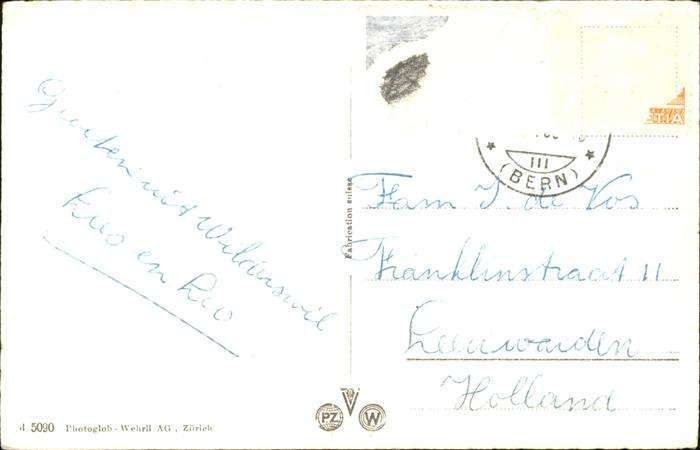 Groeten uit Wilderswil
en Leo
ETIA
III
(BERN)
Fabrication suisse
Fam J. de Vos
Franklinstraat 11
Leeuwarden
Holland
PZ
W
d 5090 Photoglob-Wehrli AG, Zürich